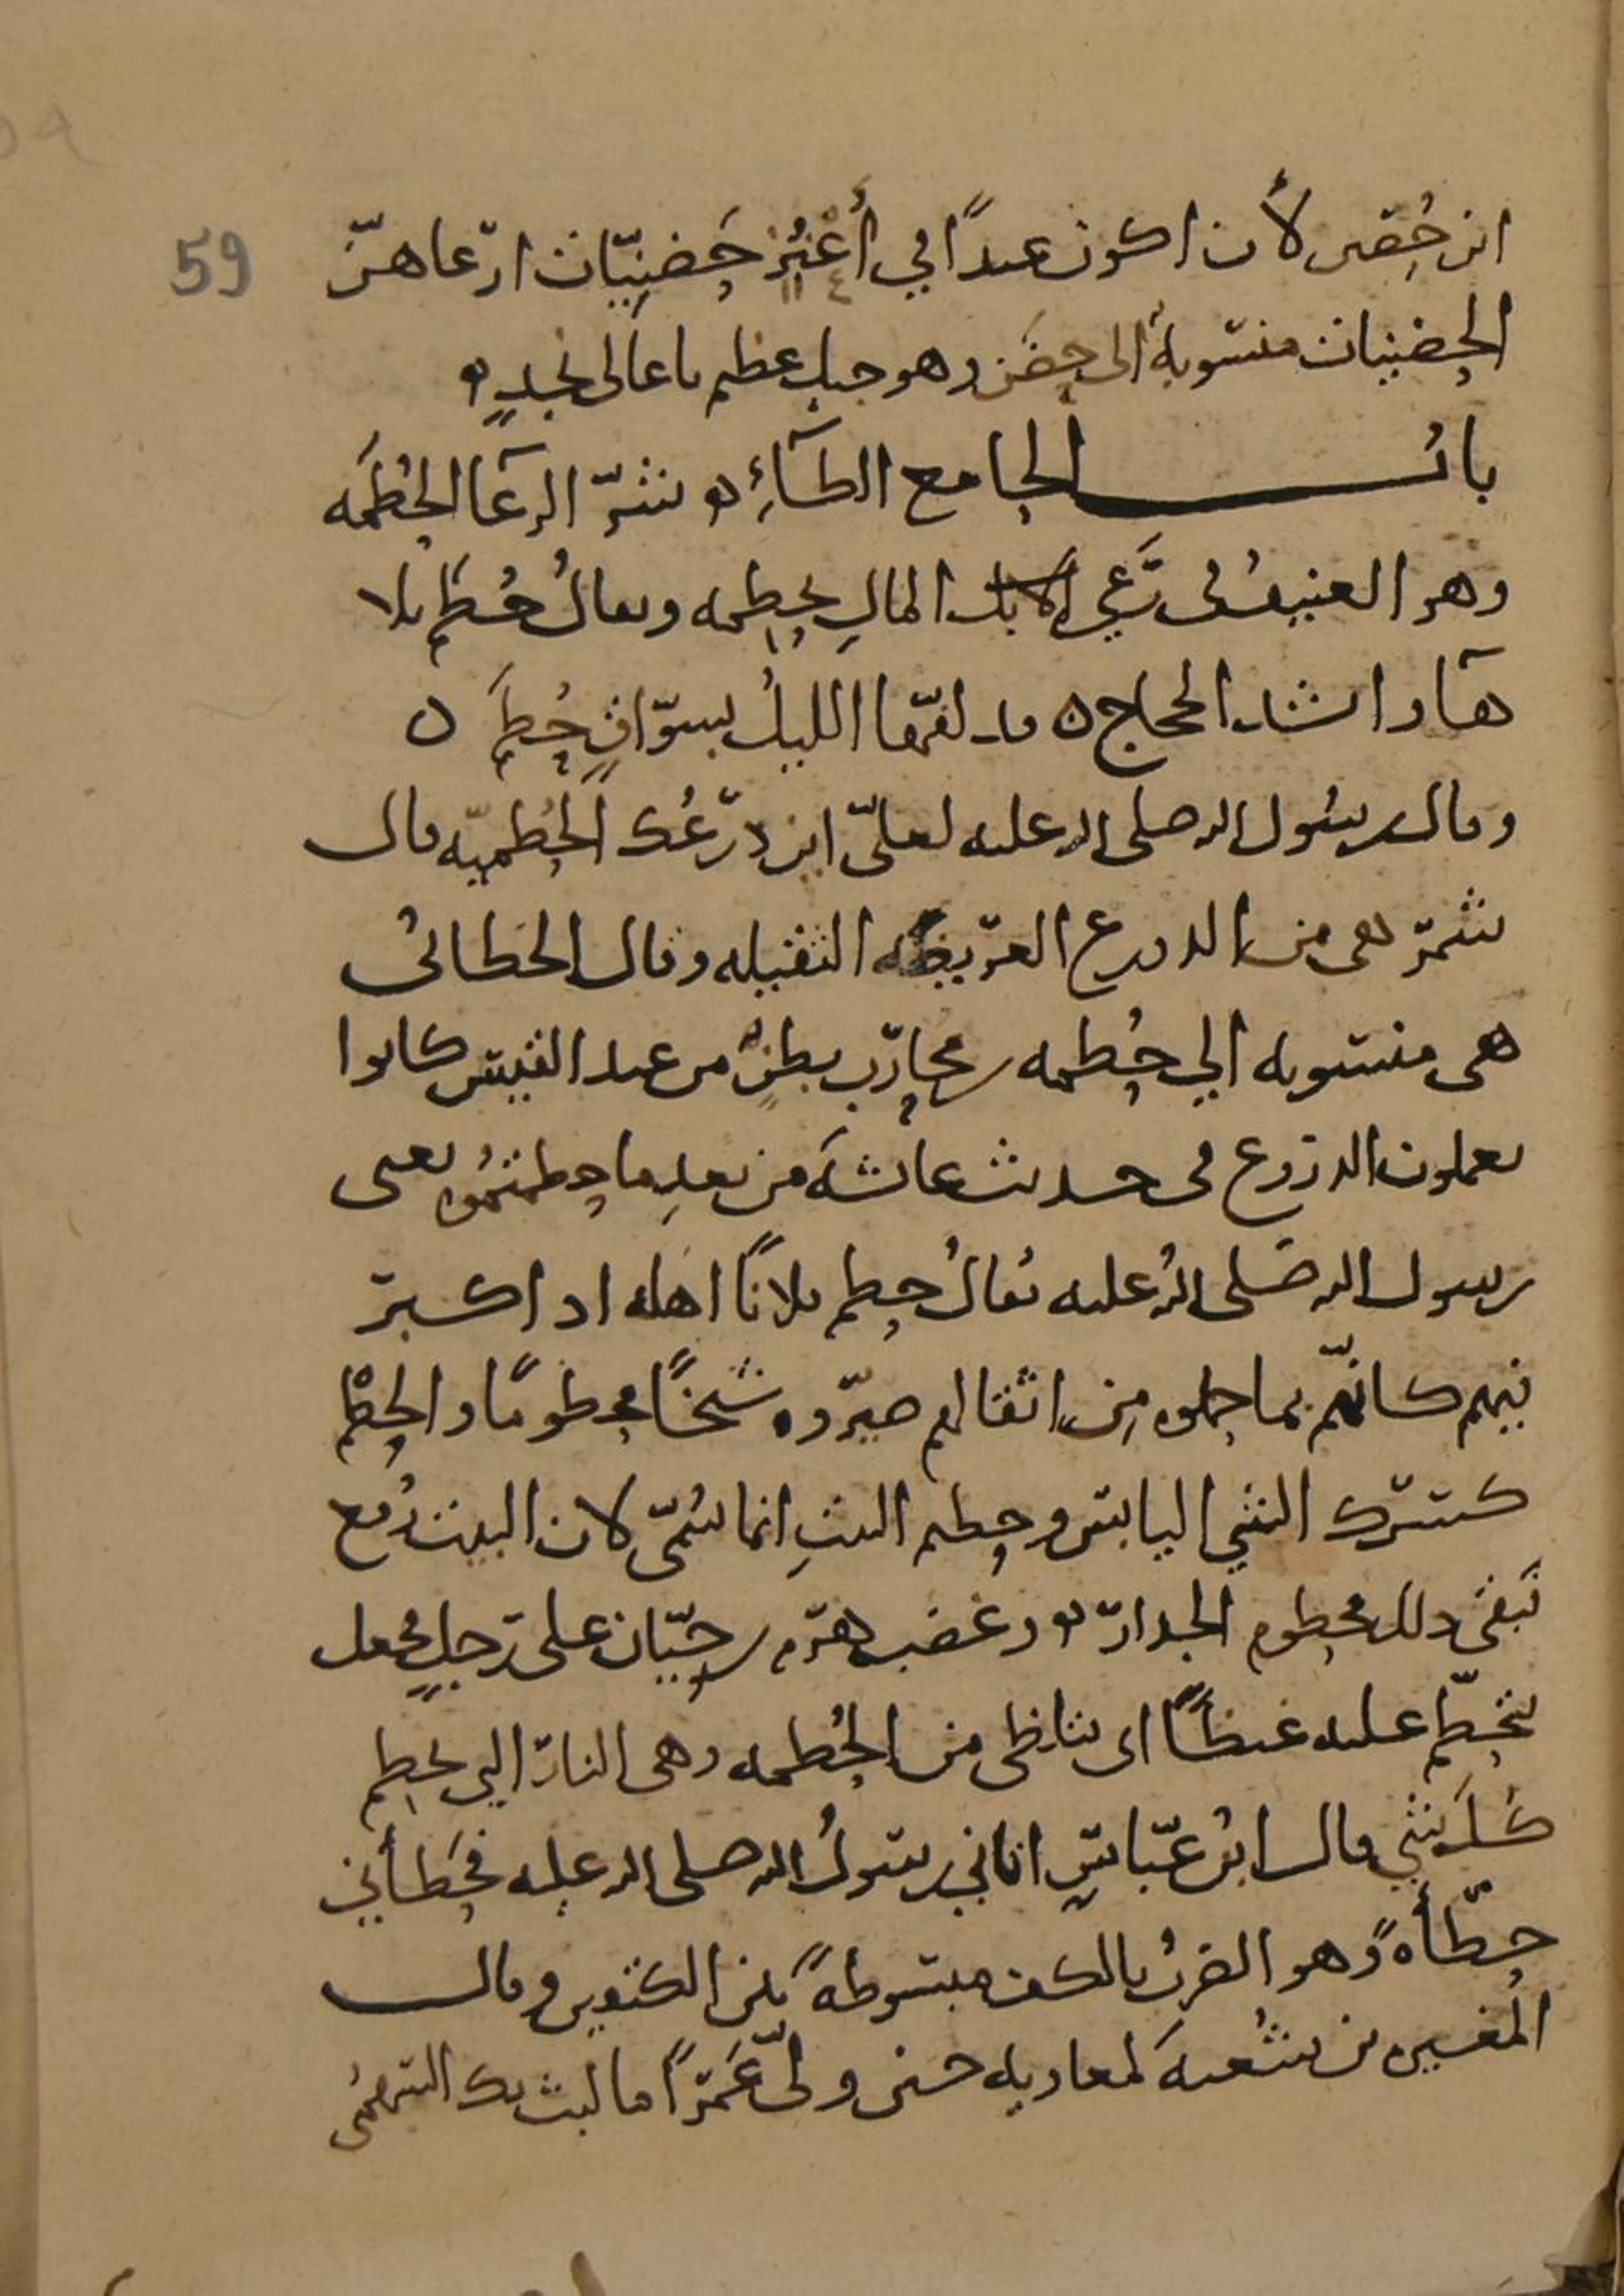 59
ابن حُصَين لأن اكون عبدًا في أعنُزٍ حَضَنِيّات ارعاهنّ
الحضنيات منسوبةٌ الى حضَن وهو جبل عظيم باعالى نجدٍ
باب الحاء مع الطآءِ شرّ الرعآء الحُطَمَه
وهو العنيفُ فى رَعي الابل المالِ يحطمه ويقالُ حُطَم بلا
هآء وانشد الحجاج قد لفّها الليلُ بسوّاقٍ حُطَم
وقال رسول الله صلى الله عليه لعلىّ اين درعُك الحُطَميّه قال
شمر هى من الدروع العريضه الثقيله وقال الخطابى
هى منسوبه الي حُطمه بن محارب بطنٌ من عبد القيس كانوا
يعملون الدروع فى حديث عائشه من بعدِ ما حطمتمُوه يعنى
رسول الله صَلى الله عليه يُقالُ حطم فلانًا اهله اذا كبر
فيهم كانّهم بما حملوه مِن اثقالهم صيّروه شيخًا محطومًا والحطْم
كسرك الشي اليابس وحطيم البيتِ انما سُمّى لان البيت رُفع
فبقى ذلك محطوم الجدار وغضب هرم بن حيّان على رجلٍ فجعل
يتحطّم عليه غيظًا اى يتلظى من الحُطمه وهى النار التي تحطم
كلَّ شي وقال ابنُ عبّاسٍ اتاني رسولُ الله صلى الله عليه فحَطَأني
حطّأةً وهو الضربُ بالكف مبسوطةً بين الكتفين وقال
المُغيره بن شعبةَ لمعاويه حين ولّى عَمرًا ما لبث بك السهمىُ